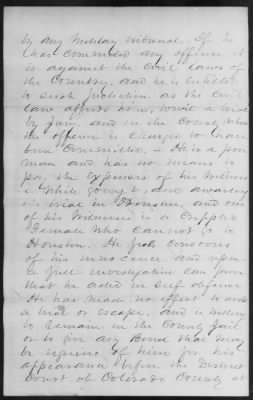 by any Military tribunal. If he
has committed any offence it
is against the Civil laws of
the Country, and he is entitled
to such protection as the Civil
law affords him, to wit a trial
by Jury, and in the County where
the offence is charged to have
been committed. - He is a poor
man and has no means to
pay the expenses of his Witnesses
while going to, and awaiting
his trial in Houston, and one
of his Witnesses is a Crippled
Female who can not go to
Houston. He feels conscious
of his innocence and upon
a full investigation can prove
that he acted in self defence
He has made no effort to avoid
a trial or escape, and is willing
to remain in the County Jail
or to give any Bond that may
be required of him for his
appearance before the District
Court of Colorado County at